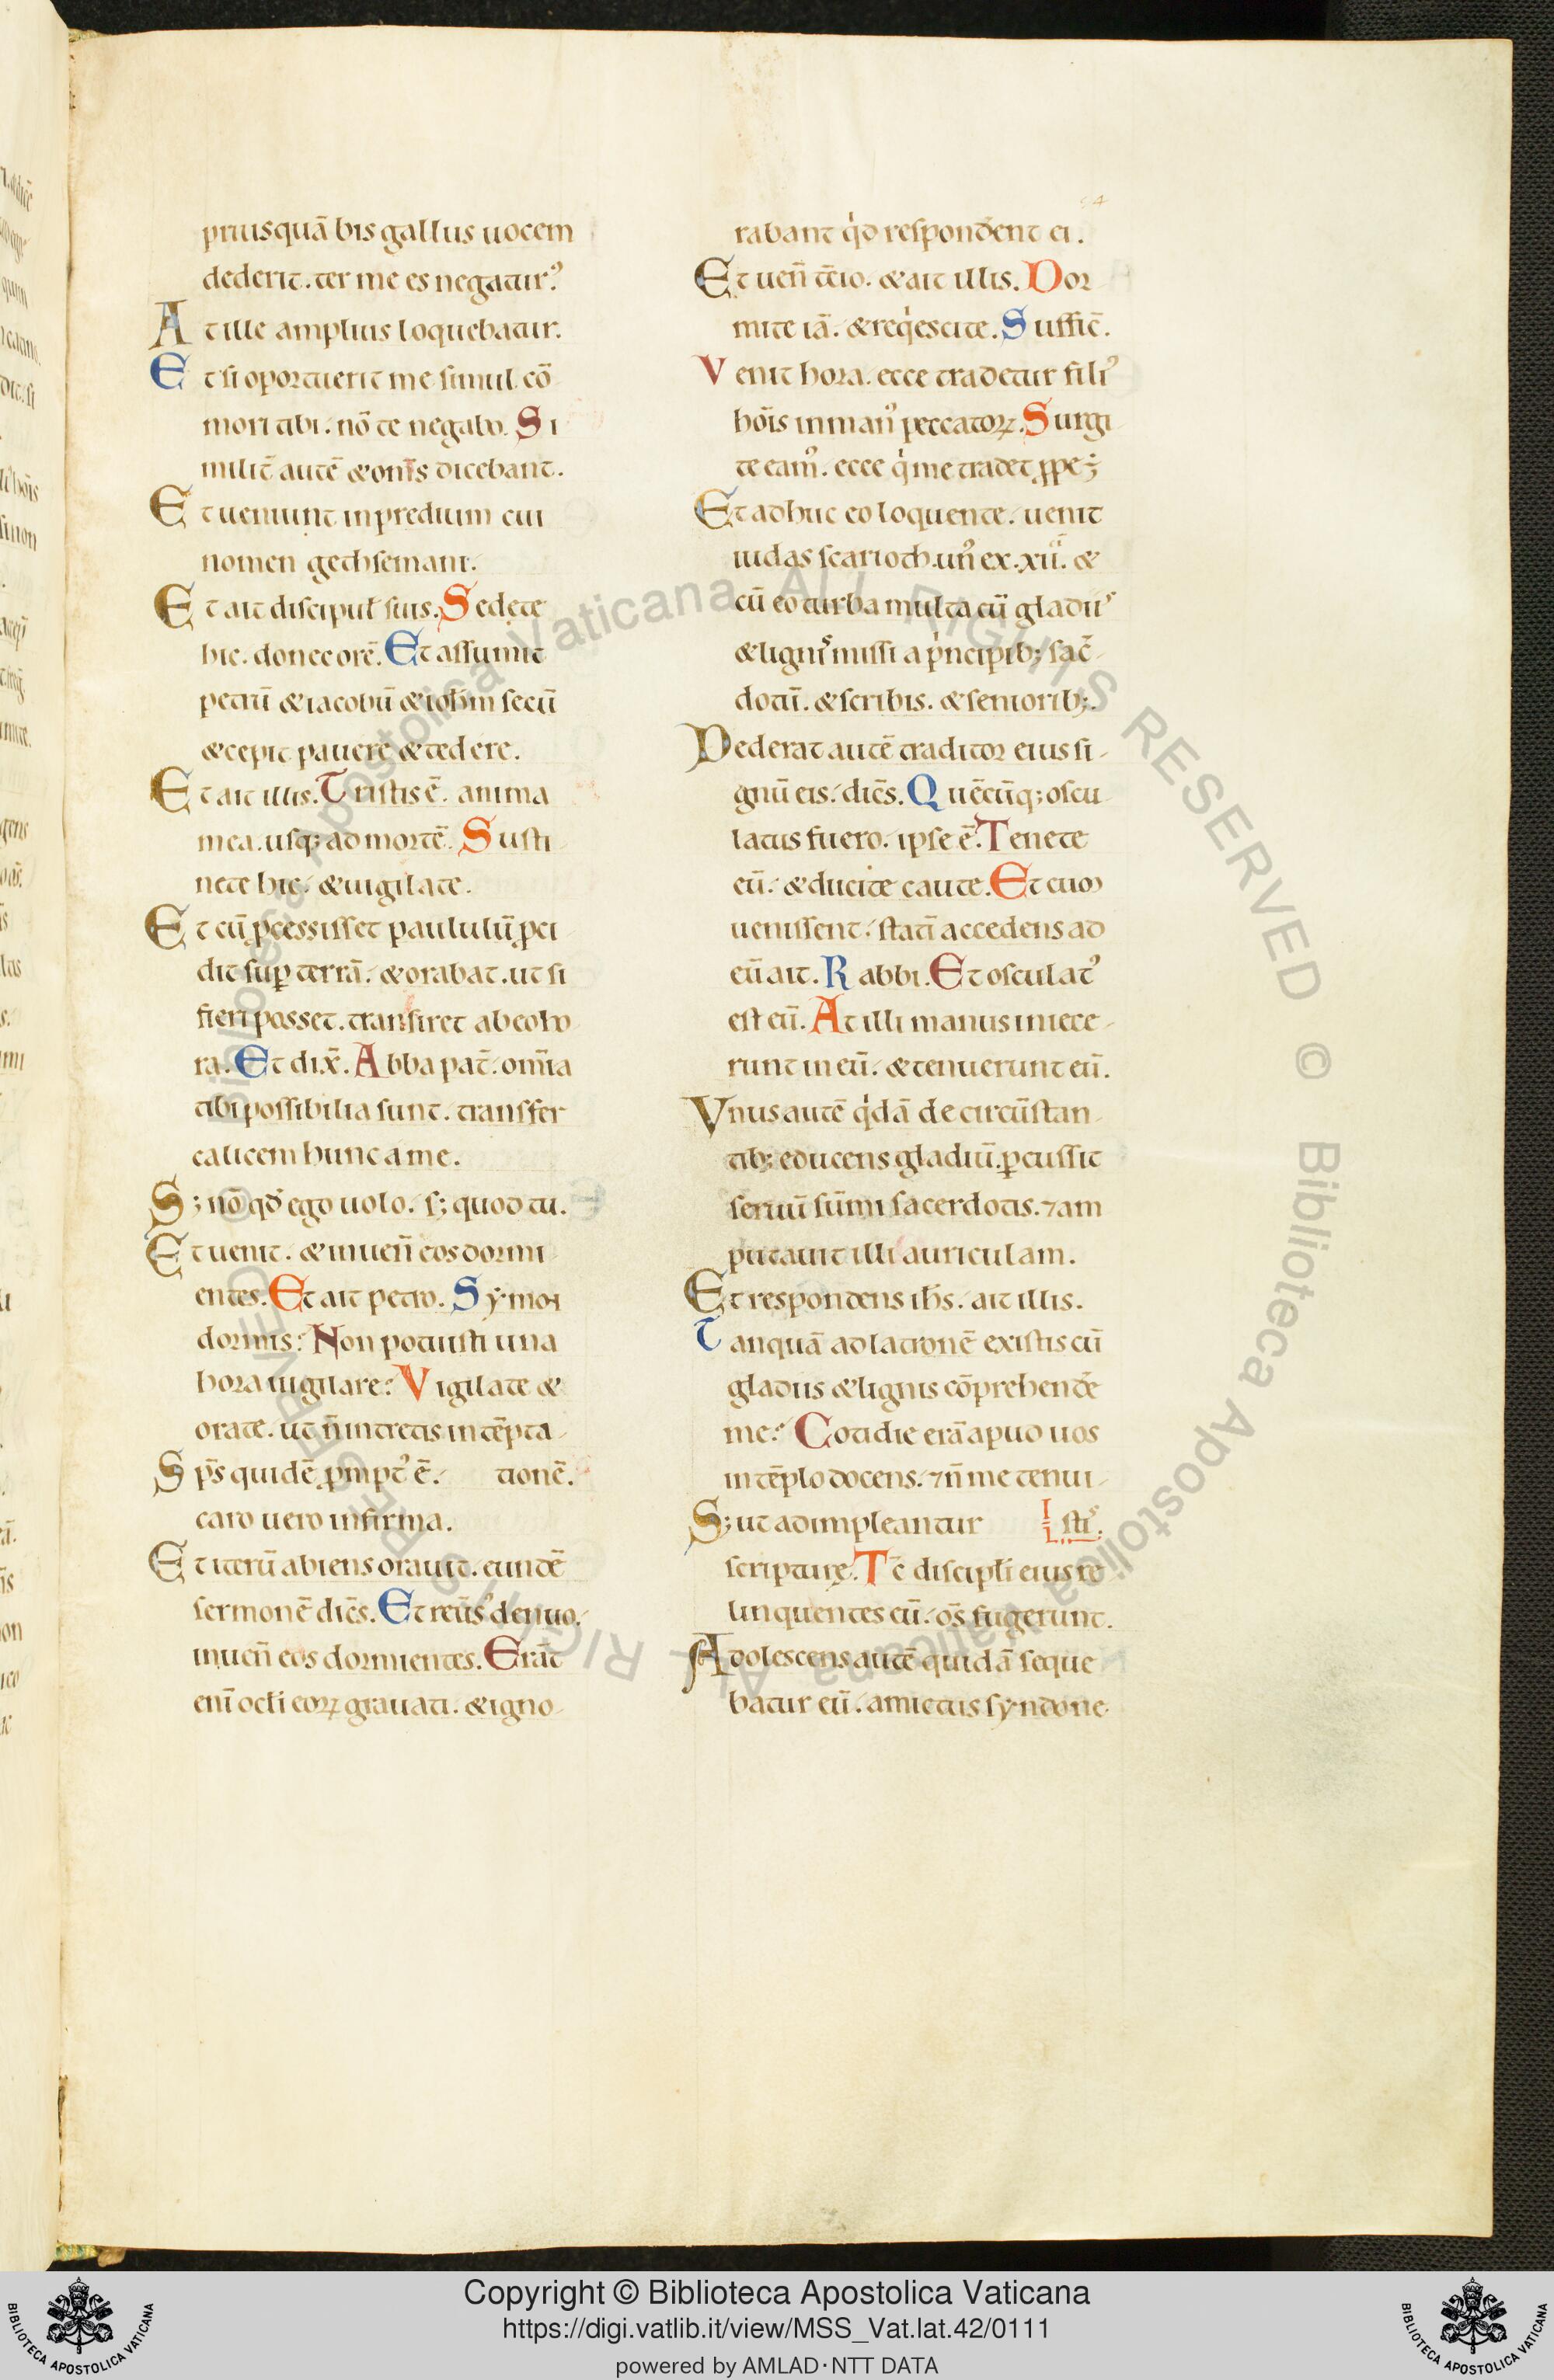 priusquā bis gallus uocem
dederit. ter me es negatur᾿.
At ille amplius loquebatur.
Et si oportuerit me simul cō
mori tibi. nō te negabo. Si
milit̄ autē & om̄s dicebant.
Et ueniunt in predium cui
nomen gethsemani.
Et ait discipul̄ suis. Sedete
hic. donec orē. Et assumit
petrū & iacobū & ioh̄m secū
& cepit pauere & tedere.
Et ait illis. Tristis ē. anima
mea. usq; ad mortē. Susti
nete hic. & uigilate.
Et cū ꝓcessisset paululū ꝓci
dit sup̱ terrā. & orabat. ut si
fieri posset. transiret ab eo ho
ra. Et dix̄. Abba pat̄. om̄ia
tibi possibilia sunt. transfer
calicem hunc a me.
S; nō qd̄ ego uolo. s; quod tu.
Et uenit. & inuen̄ eos dormi
entes. Et ait petro. Symon
dormis? Non potuisti una
hora uigilare? Vigilate &
orate. ut n̄ intretis in tēpta
Sp̄s quidē ꝓmpt᾿ ē. tionē.
caro uero infirma.
Et iterū abiens orauit. eundē
sermonē dic̄s. Et reūs᾿ denuo.
inuen̄ eos dormientes. Erāt
enī ocl̄i eoꝝ grauati. & igno
rabant qid responderent ei.
Et uen̄ t̄cio. & ait illis. Dor
mite iā. & reqiescite. Suffic̄.
Venit hora. ecce tradetur fili᾿
hōis in man᾿ peccatoꝝ. Surgi
te eam᾿. ecce qi me tradet ꝓpe ē;
Et adhuc eo loquente. uenit
iudas scarioth. un᾿ ex .xii. &
cū eo turba multa cū gladiis
& lignis missi a pincipib; sac̄
dotū. & scribis. & seniorib;.
Dederat autē traditor eius si
gnū eis. dic̄s. Quēcūq; oscu
latus fuero. ipse ē. Tenete
eū. & ducite caute. Et cum
uenissent. statī accedens ad
eū ait. Rabbi. Et osculat᾿
est eū. At illi manus iniece
runt in eū. & tenuerunt eū.
Vnus autē qidā de circūstan
tib; educens gladiū. ꝑcussit
seruū sūmi sacerdotis. ⁊ am
putauit illi auriculam.
Et respondens ih̄s. ait illis.
Tanquā ad latronē existis cū
gladiis & lignis cōprehendere
me? Cotidie erā apud uos
in tēplo docens. ⁊ n̄ me tenui
S; ut adimpleantur stis.
scripturę. Tc̄ discipl̄i eius re
linquentes eū. om̄s fugerunt.
Adolescens autē quidā seque
batur eū. amictus syndone
Copyright © Biblioteca Apostolica Vaticana
https://digi.vatlib.it/view/MSS_Vat.lat.42/0111
powered by AMLAD·NTT DATA